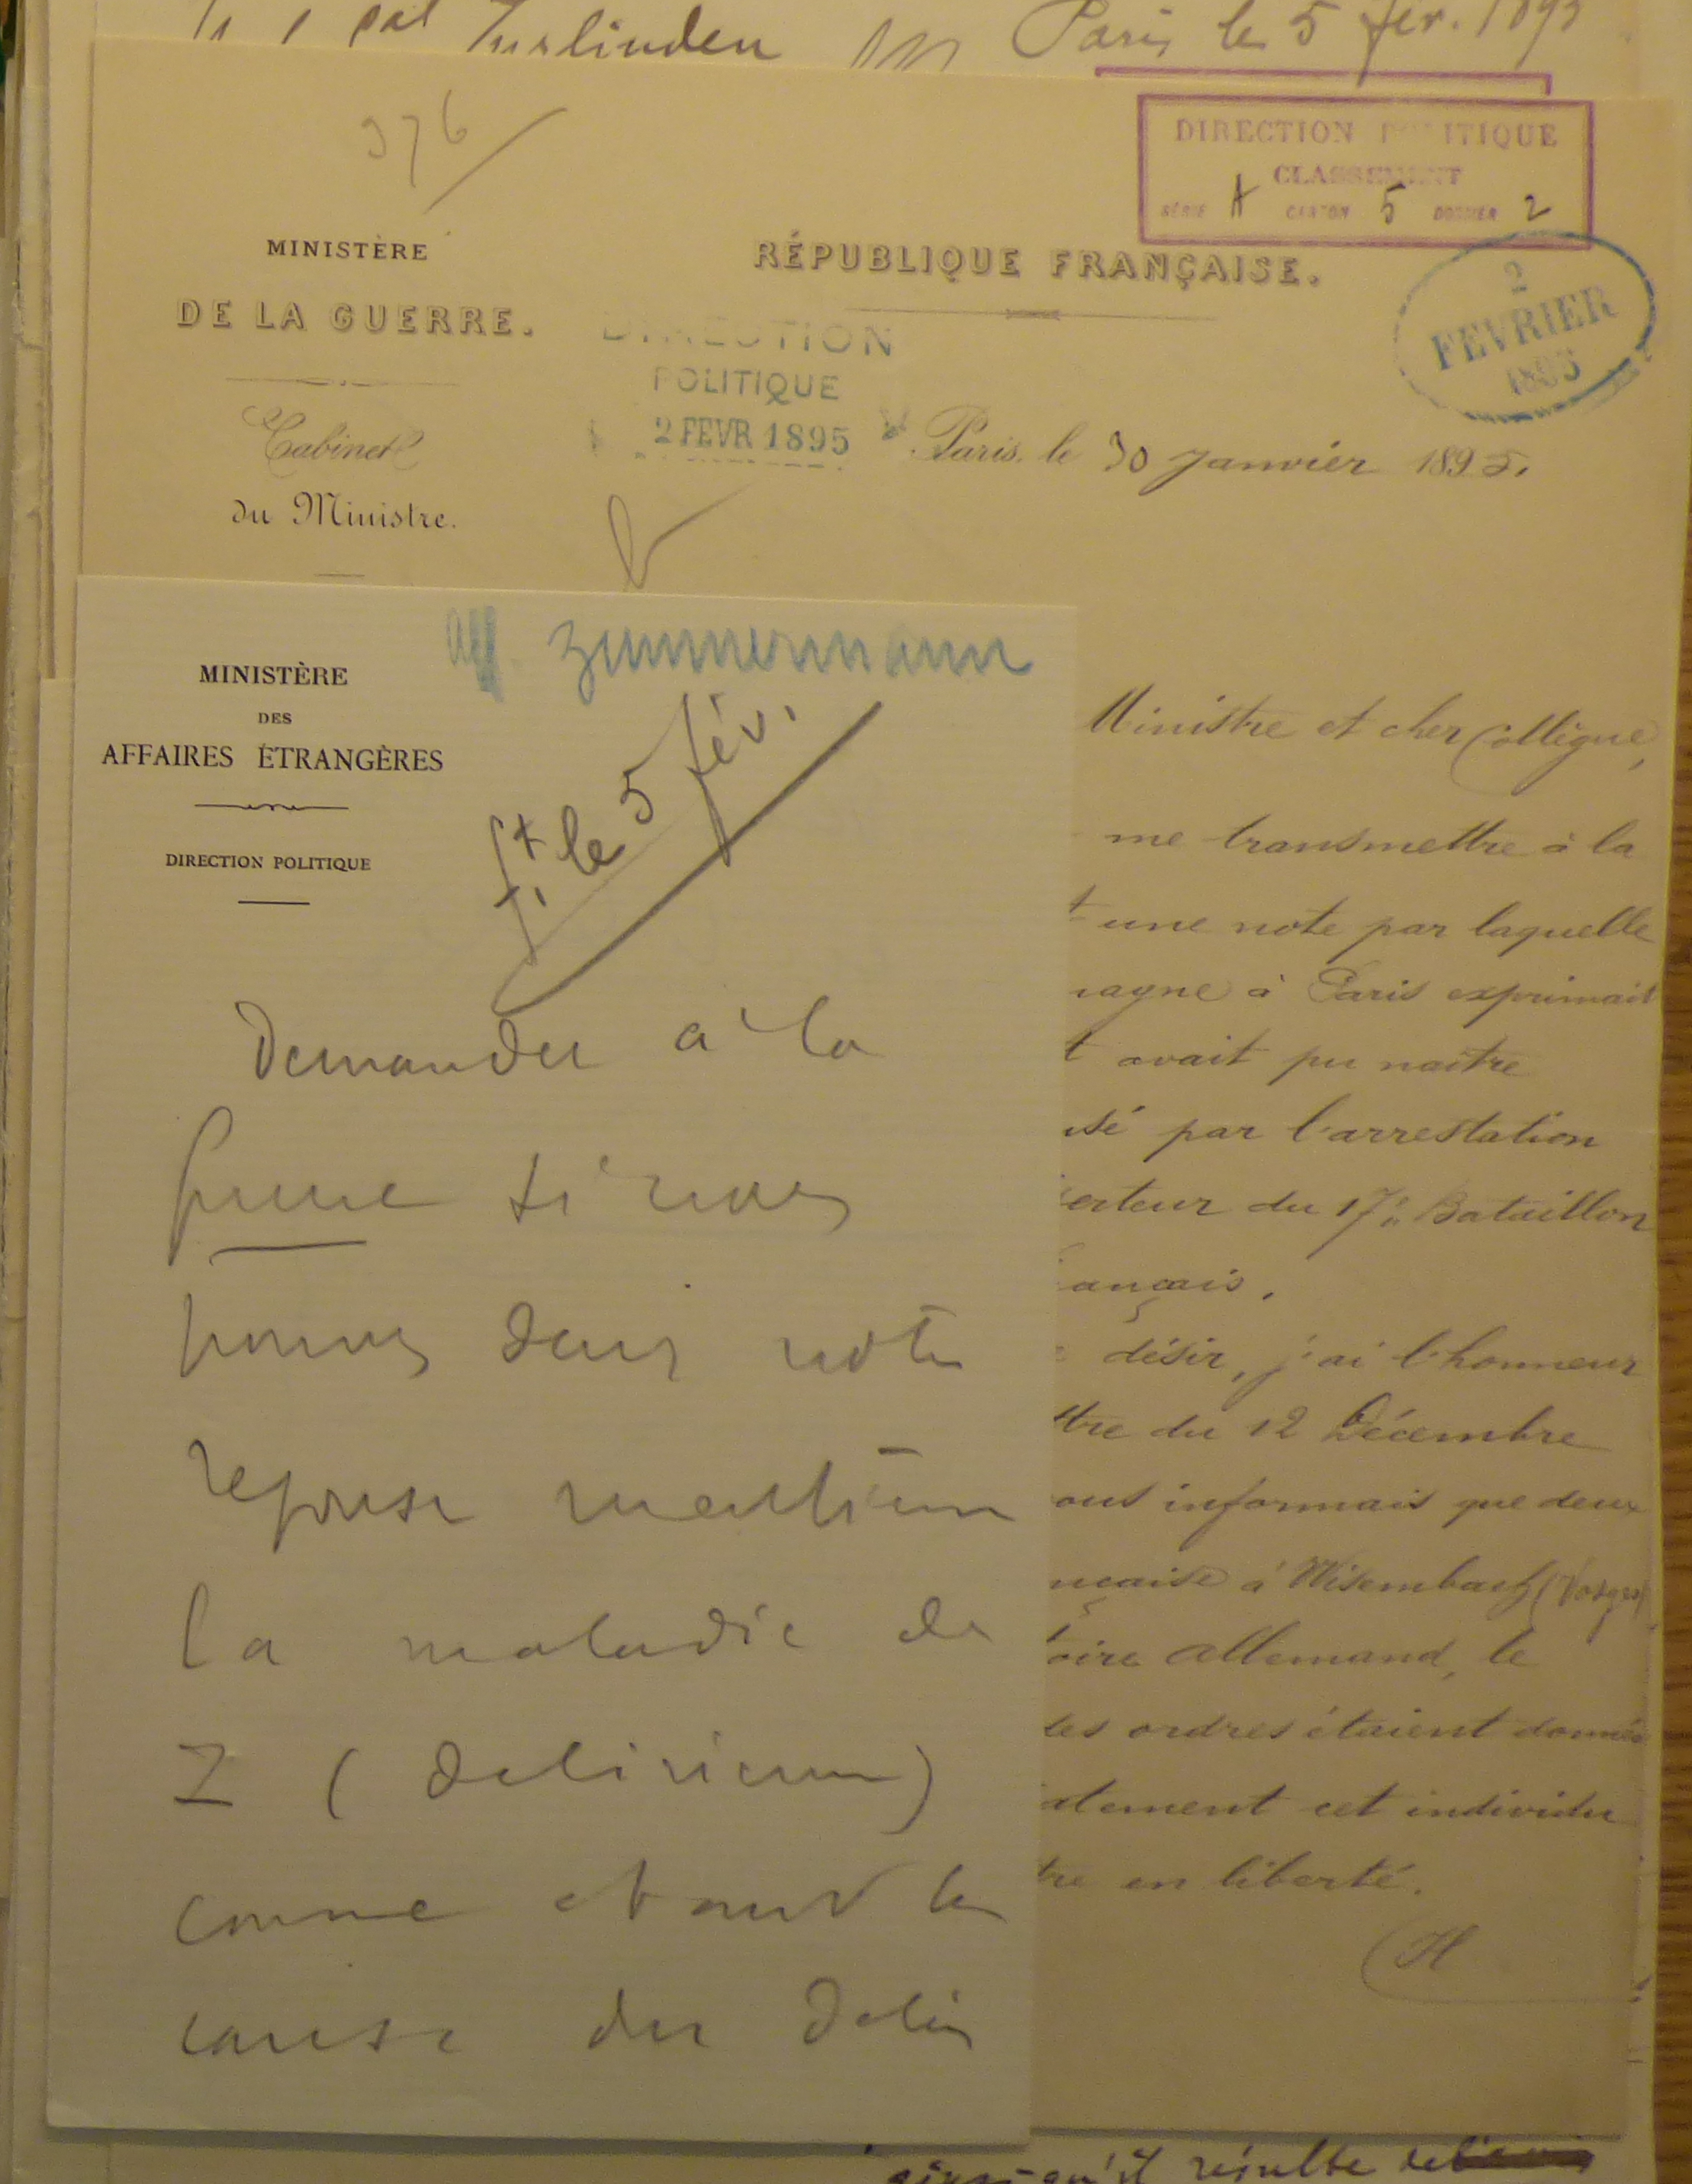 Zurlinden Paris le 5 fév. 1895
376
DIRECTION POLITIQUE
CLASSEMENT
SÉRIE A CARTON 5 DOSSIER 2
MINISTÈRE
DE LA GUERRE.
RÉPUBLIQUE FRANÇAISE.
2
FEVRIER
1895
DIRECTION
POLITIQUE
2 FEVR 1895
Cabinet
du Ministre.
Paris, le 30 Janvier 1895.
MINISTÈRE
DES
AFFAIRES ÉTRANGÈRES
DIRECTION POLITIQUE
aff. Zimmermann
le 5 fév.
Demander à la
guerre si nous
pouvons dans notre
réponse mentionner
la maladie de
Z (delirium)
comme étant la
cause du délai
Ministre et cher Collègue,
me transmettre à la
t une note par laquelle
magne à Paris exprimait
t avait pu naître
usé par l'arrestation
erteur du 17e Bataillon
ançais.
désir, j'ai l'honneur
ttre du 12 Décembre
ous informais que deux
nçaise à Wisembach (Vosges)
toire Allemand, le
les ordres étaient donnés
atement cet individu
tre en liberté.
ainsi qu'il résulte